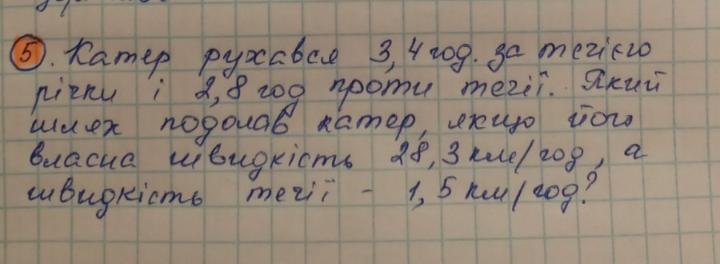 5. Катер рухався 3,4 год. за течією
річки і 2,8 год проти течії. Який
шлях подолав катер, якщо його
власна швидкість 28,3 км/год, а
швидкість течії - 1,5 км/год?